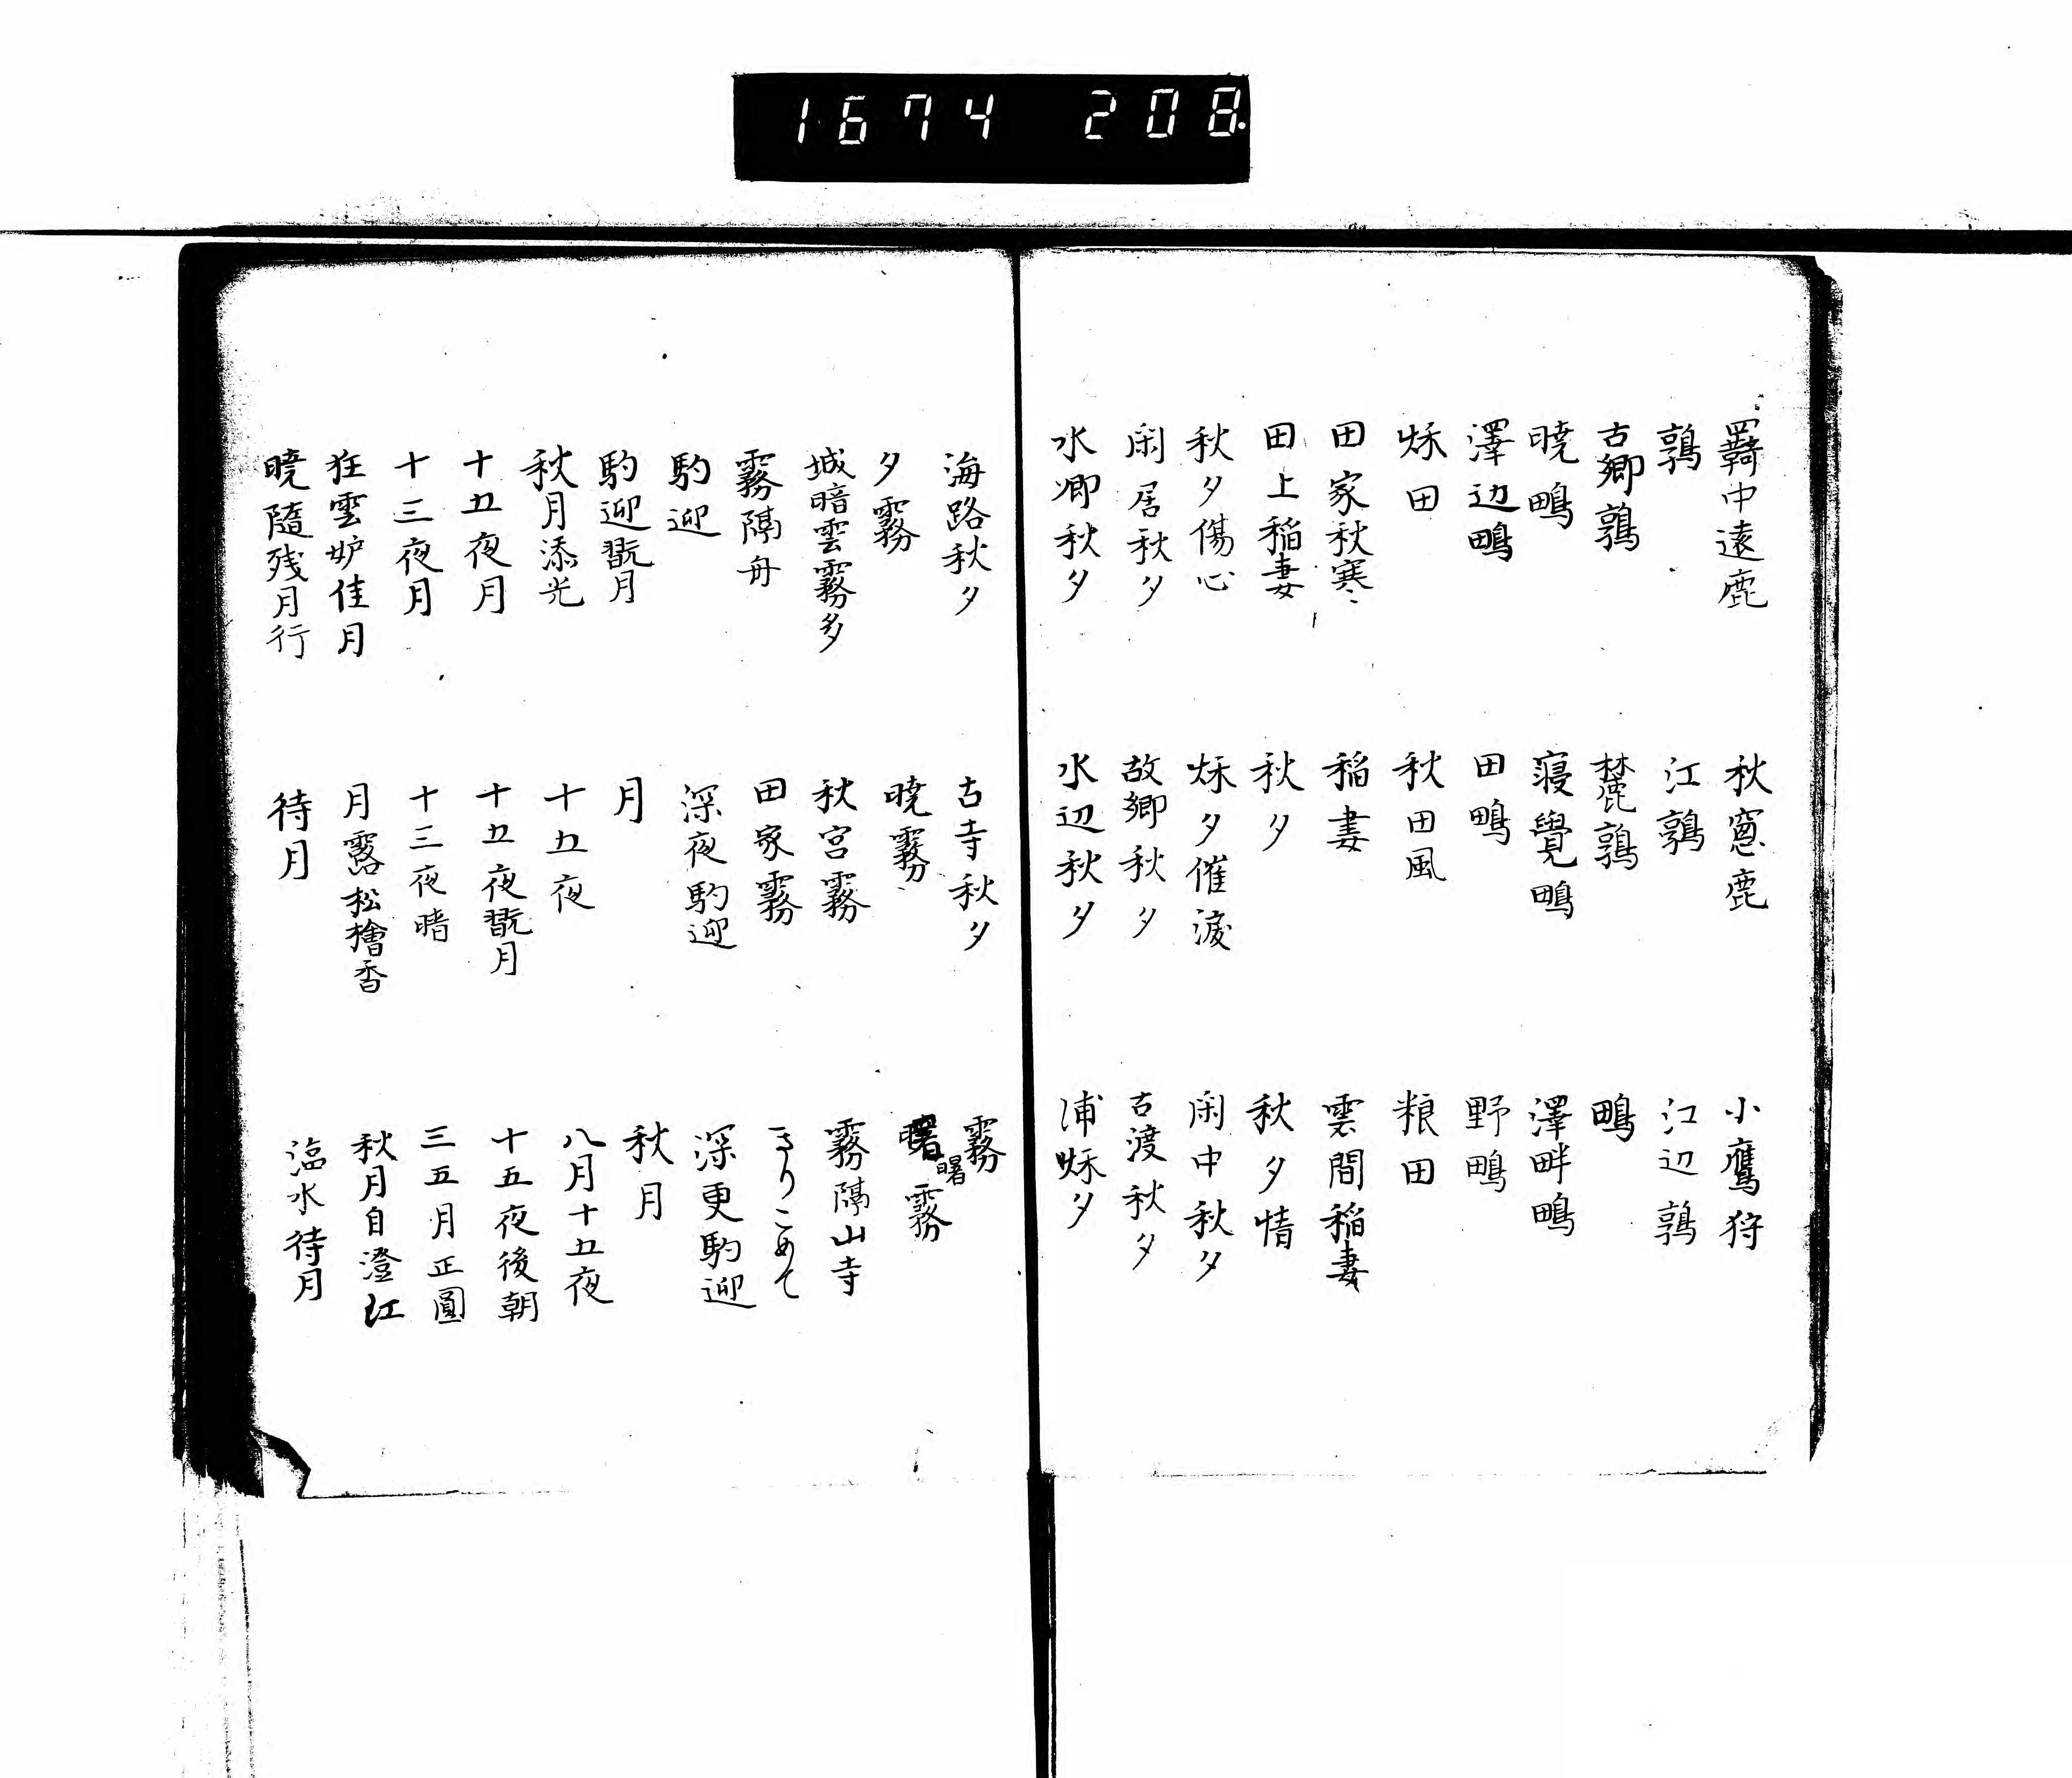 1674 208
羇中遠鹿
秋窓鹿
小鷹狩
鶉
江鶉
江辺鶉
古郷鶉
麓鶉
鴫
暁鴫
寝覺鴫
澤畔鴫
澤辺鴫
田鴫
野鴫
秌田
秋田風
粮田
田家秋寒
稲妻
雲間稲妻
田上稲妻
秋夕
秋夕情
秋夕傷心
秌夕催涙
閑中秋夕
閑居秋夕
故郷秋夕
古渡秋夕
水郷秋夕
水辺秋夕
浦秌夕
海路秋夕
古寺秋夕
霧
夕霧
暁霧
曙霧
曙
城暗雲霧多
秋宮霧
霧隔山寺
霧隔舟
田家霧
きりこめて
駒迎
深夜駒迎
深更駒迎
駒迎翫月
月
秋月
秋月添光
十五夜
八月十五夜
十五夜月
十五夜翫月
十五夜後朝
十三夜月
十三夜晴
三五月正圓
狂雲妒佳月
月露松檜香
秋月自澄江
暁隨残月行
待月
臨水待月